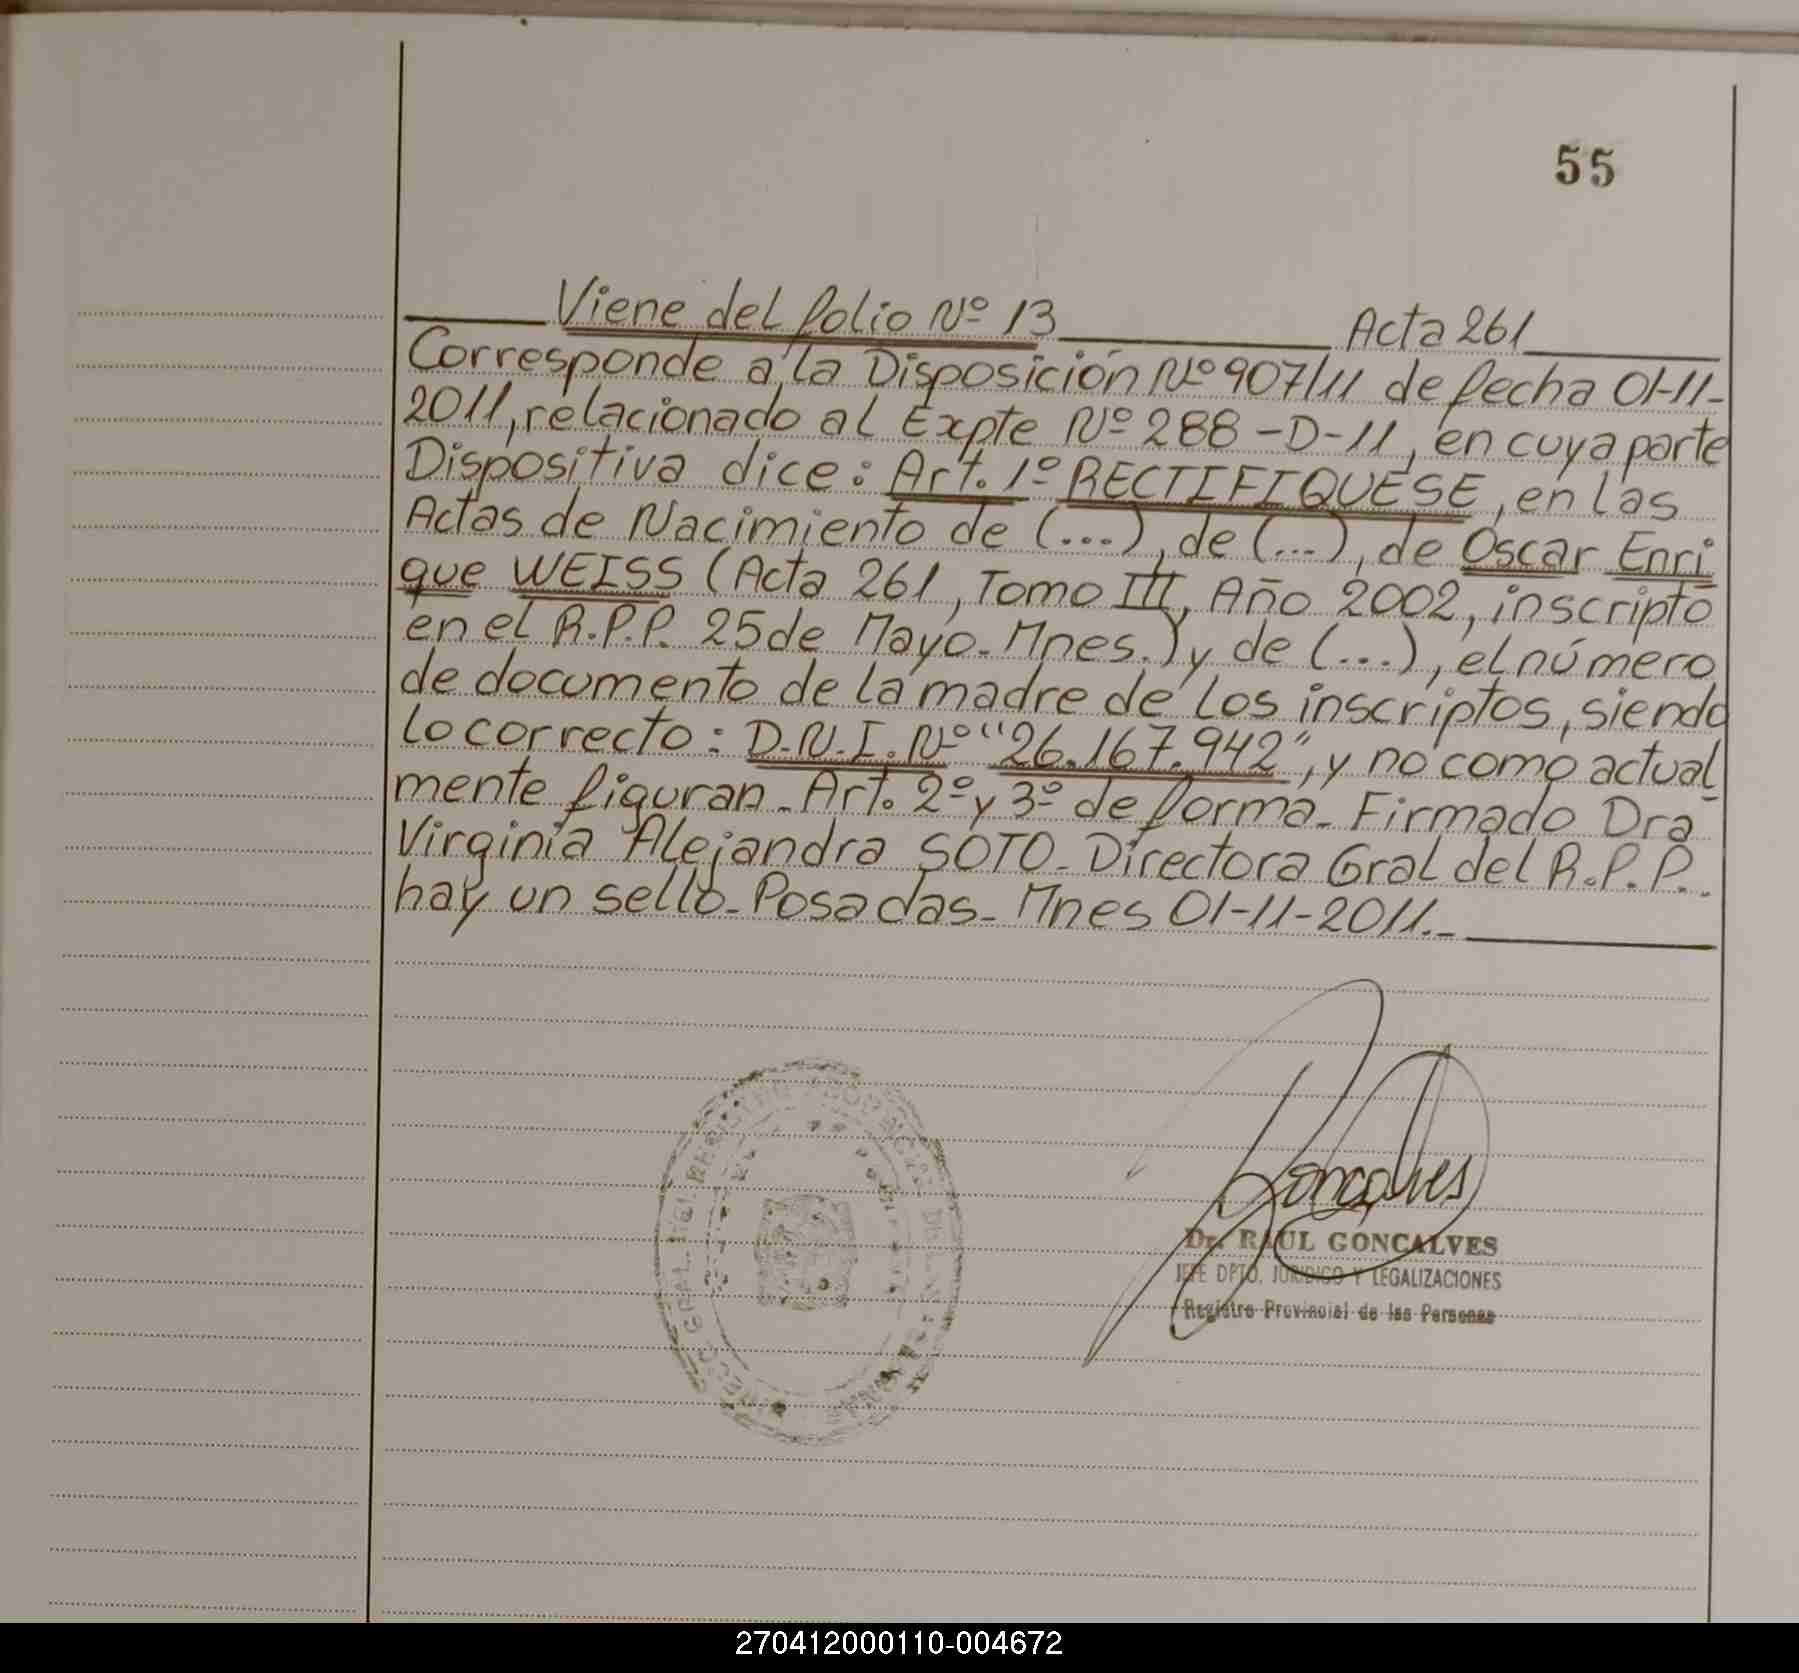 55
Viene del folio Nº 13 Acta 261
Corresponde a la Disposición Nº 907/11 de fecha 01-11-
2011, relacionado al Expte Nº 288-D-11, en cuya parte
Dispositiva dice: Art. 1º RECTIFIQUESE, en las
Actas de Nacimiento de (...), de (...), de Oscar Enri
que WEISS (Acta 261, Tomo III, Año 2002, inscripto
en el R.P.P. 25 de Mayo-Mnes.) y de (...), el número
de documento de la madre de los inscriptos, siendo
lo correcto: D.N.I. Nº "26.167.942", y no como actual
mente figuran. Art. 2º y 3º de forma. Firmado Dra
Virginia Alejandra SOTO. Directora Gral del R.P.P.
hay un sello. Posadas. Mnes 01-11-2011.-
Goncalves
Dr. RAUL GONCALVES
JEFE DPTO. JURIDICO Y LEGALIZACIONES
Registro Provincial de las Personas
270412000110-004672